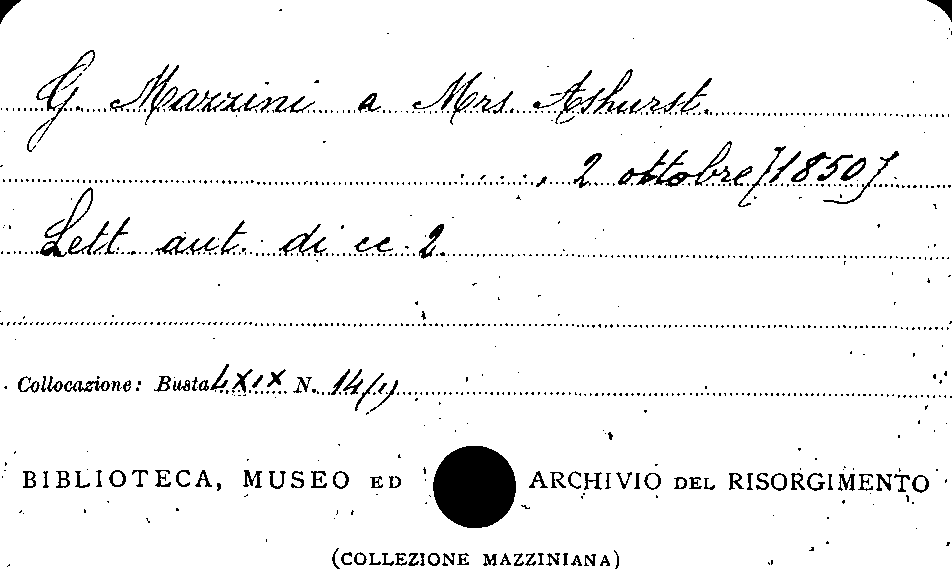 G. Mazzini a Mrs. Ashurst.
....., 2 ottobre [1850]
Lett. aut. di cc. 2.
Collocazione: Busta LXIX N. 14(1)
BIBLIOTECA, MUSEO ED ARCHIVIO DEL RISORGIMENTO
(COLLEZIONE MAZZINIANA)